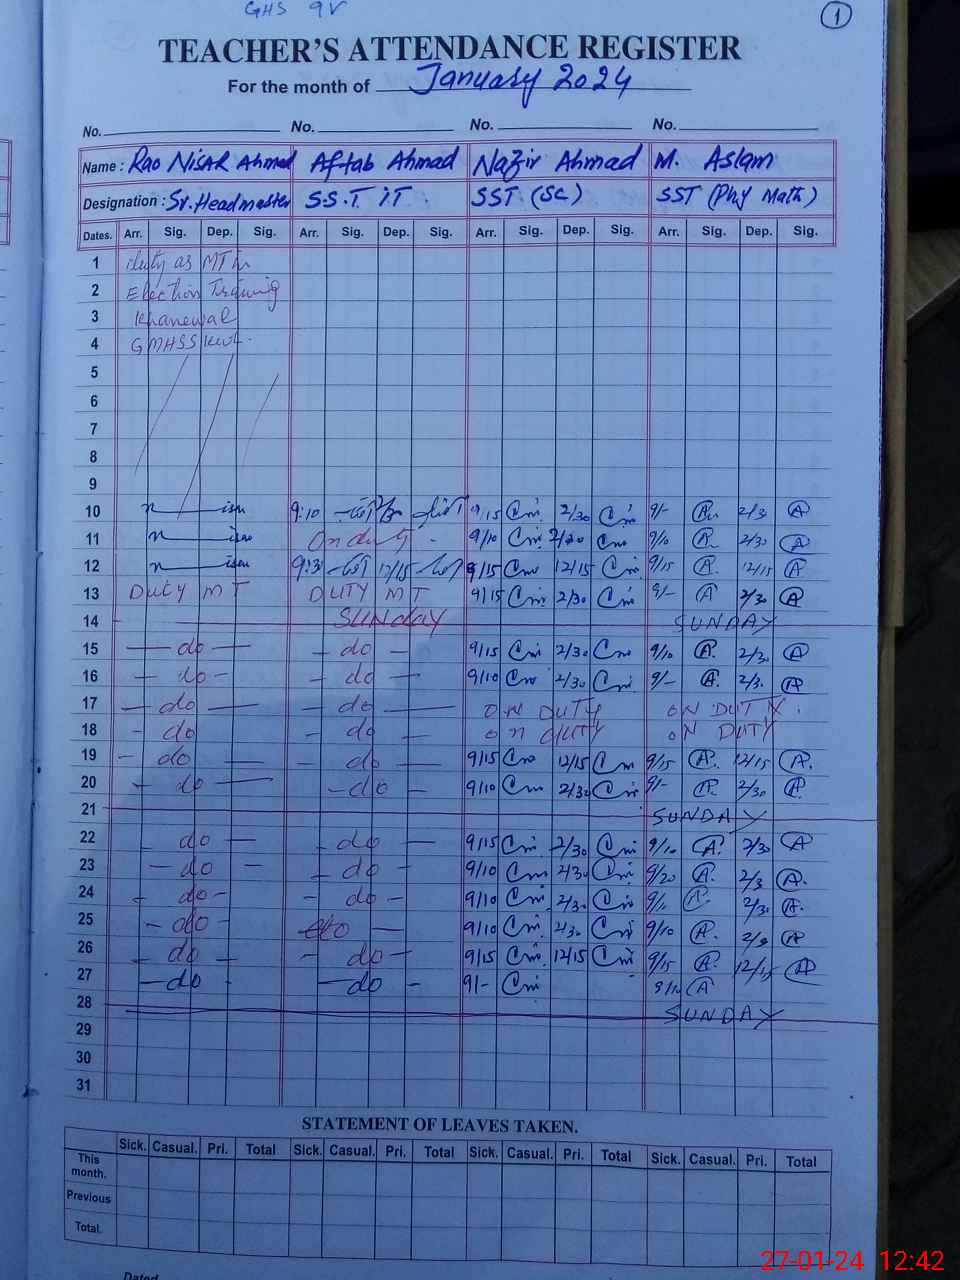 GHS 9V
1
TEACHER'S ATTENDANCE REGISTER
For the month of January 2024
No. No. No. No.
Name : Rao Nisar Ahmed Aftab Ahmad Nazir Ahmad M. Aslam
Designation : Sr. Headmaster S.S.T IT SST (Sc) SST (Phy Math)
Dates. Arr. Sig. Dep. Sig. Arr. Sig. Dep. Sig. Arr. Sig. Dep. Sig. Arr. Sig. Dep. Sig.
1 duty as MT in
2 Election Training
3 Khanewal
4 GMHSS
5
6
7
8
9
10 9:10 9/15 Cm 2/30 Cm 9/- A 2/30 A
11 On duty - 9/10 Cm 2/30 Cm 9/10 A 2/30 A
12 9:30 12/15 9/15 Cm 12/15 Cm 9/15 A 12/15 A
13 Duty MT DUTY MT 9/15 Cm 2/30 Cm 9/- A 2/30 A
14 SUNday SUNDAY
15 — do — — do — 9/15 Cm 2/30 Cm 9/10 A 2/30 A
16 — do — — do — 9/10 Cm 2/30 Cm 9/- A 2/30 A
17 — do — — do — ON DUTY ON DUTY.
18 - do - do — on dUTY oN DUTY
19 — do — — do — 9/15 Cm 12/15 Cm 9/15 A. 12/15 A.
20 — do — — do — 9/10 Cm 2/30 Cm 9/- A 2/30 A
21 SUNDAY
22 - do — - do — 9/15 Cm 2/30 Cm 9/10 A. 2/30 A
23 — do — — do — 9/10 Cm 2/30 Cm 9/20 A. 2/3 A.
24 — do — — do — 9/10 Cm 2/30 Cm A 2/30 A.
25 — do — do — 9/10 Cm 2/30 Cm 9/10 A. A
26 — do — — do — 9/15 Cm 12/15 Cm 9/15 A. 12/15 A
27 — do — — do — 9/- Cm A
28 SUNDAY
29
30
31
STATEMENT OF LEAVES TAKEN.
Sick. Casual. Pri. Total Sick. Casual. Pri. Total Sick. Casual. Pri. Total Sick. Casual. Pri. Total
This month.
Previous
Total.
Dated
27-01-24 12:42